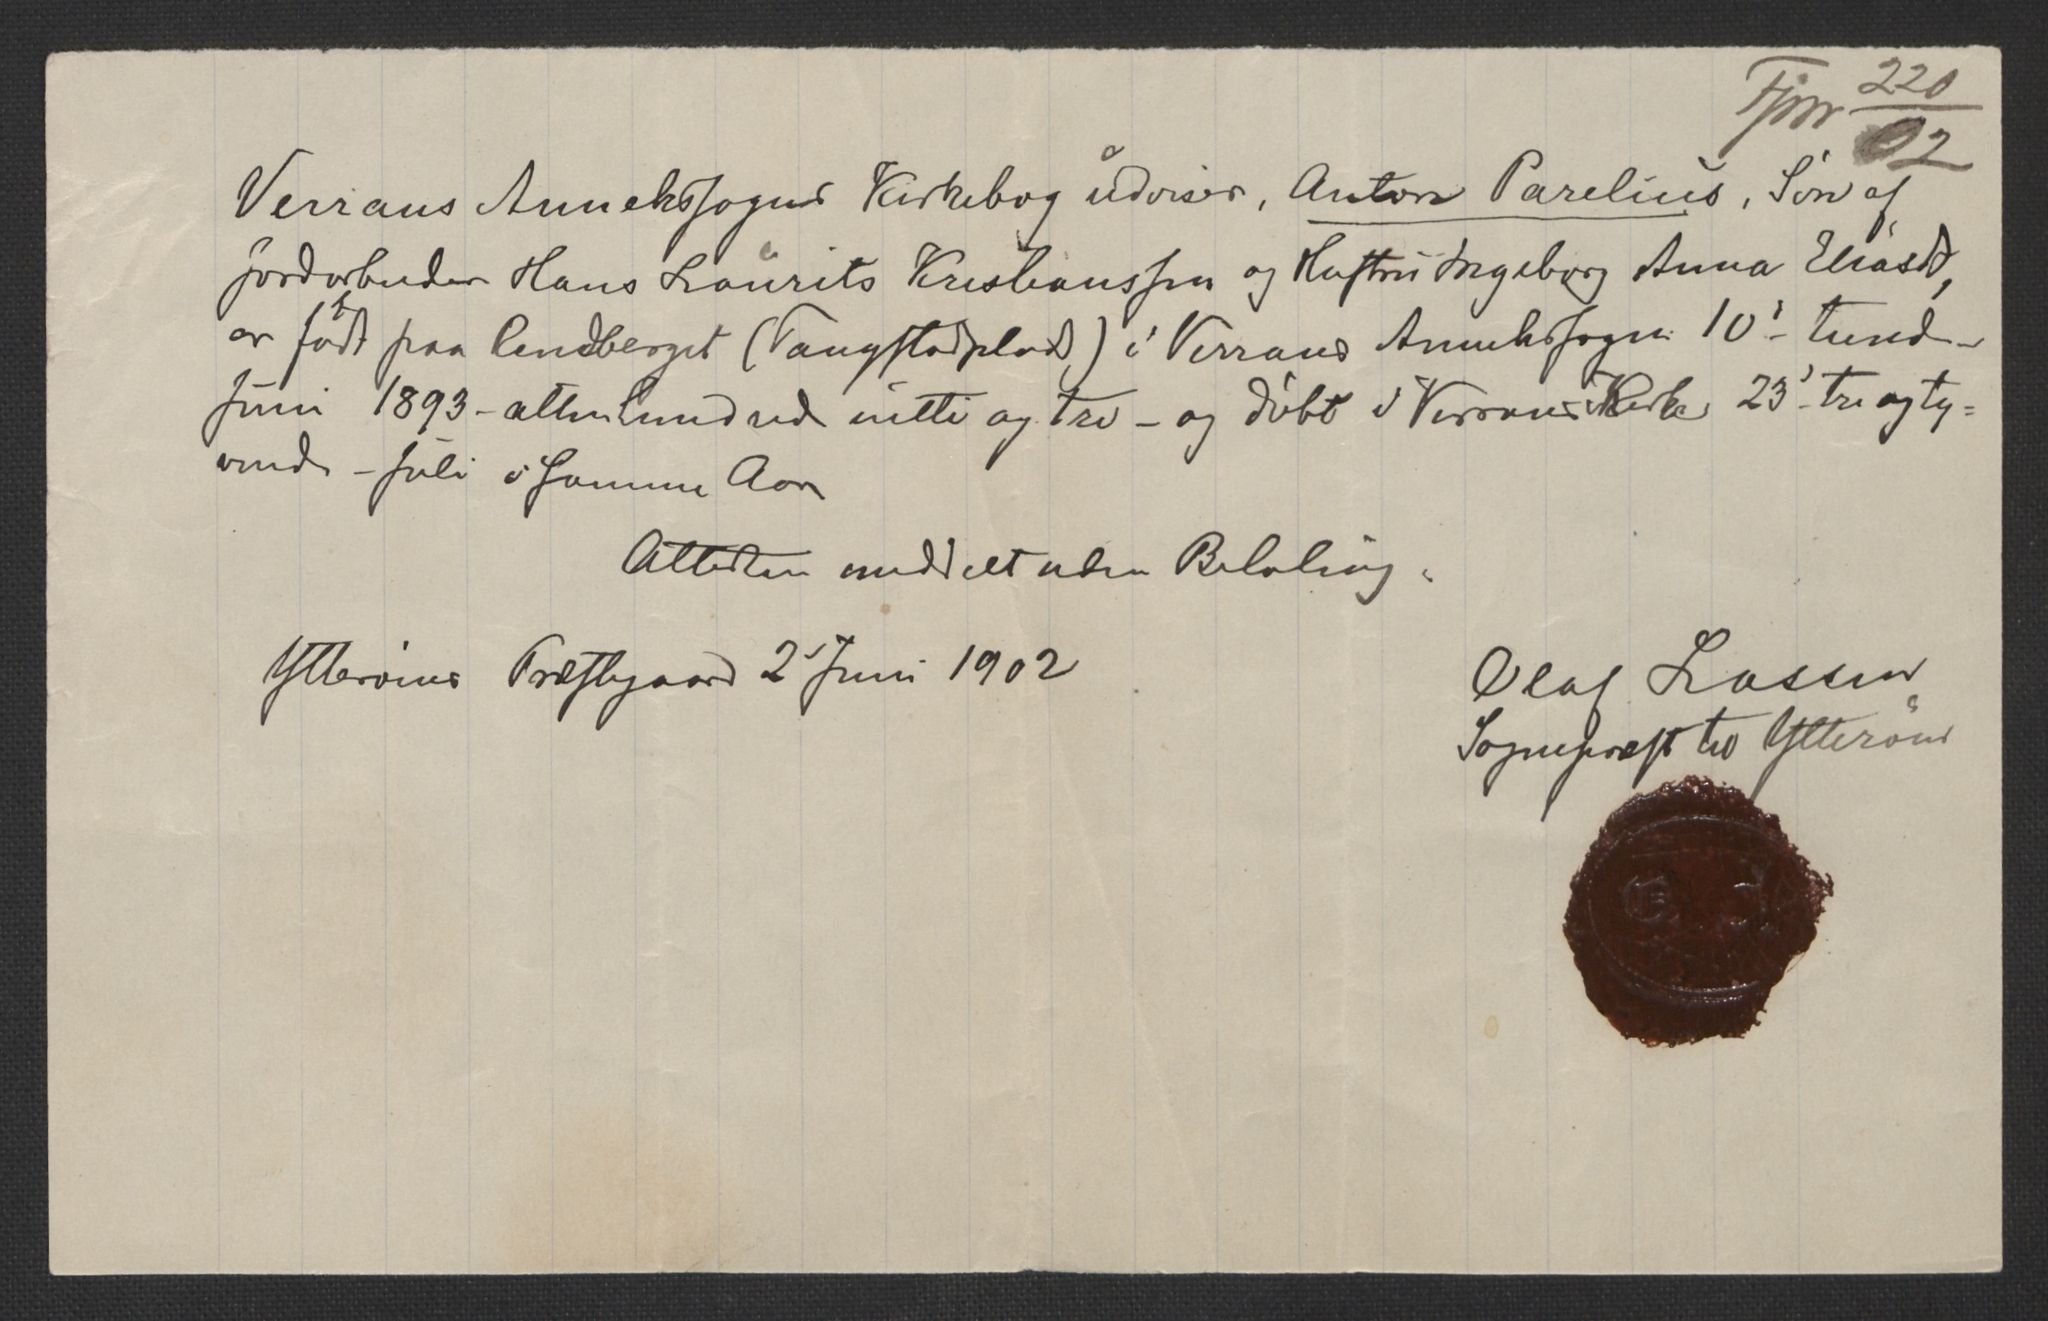 Fjnr 220/02
Verrans Annekssogns Kirkebog udviser, Anton Parelius, Søn af
Jordarbeider Hans Laurits Kristianssen og Hustru Ingeborg Anna Eliasd,
er født paa Lendberget (Tangstadplads) i Verrans Annekssogn 10' – tiende –
Juni 1893 – attenhundrede nitti og tre – og døbt i Verrans Kirke 23' – tre og ty=
vende – Juli i samme Aar
Attesten meddelt uden Betaling.
Ytterøens Præstegaard 2' Juni 1902
Olaf Lassen
Sognepræst til Ytterøen